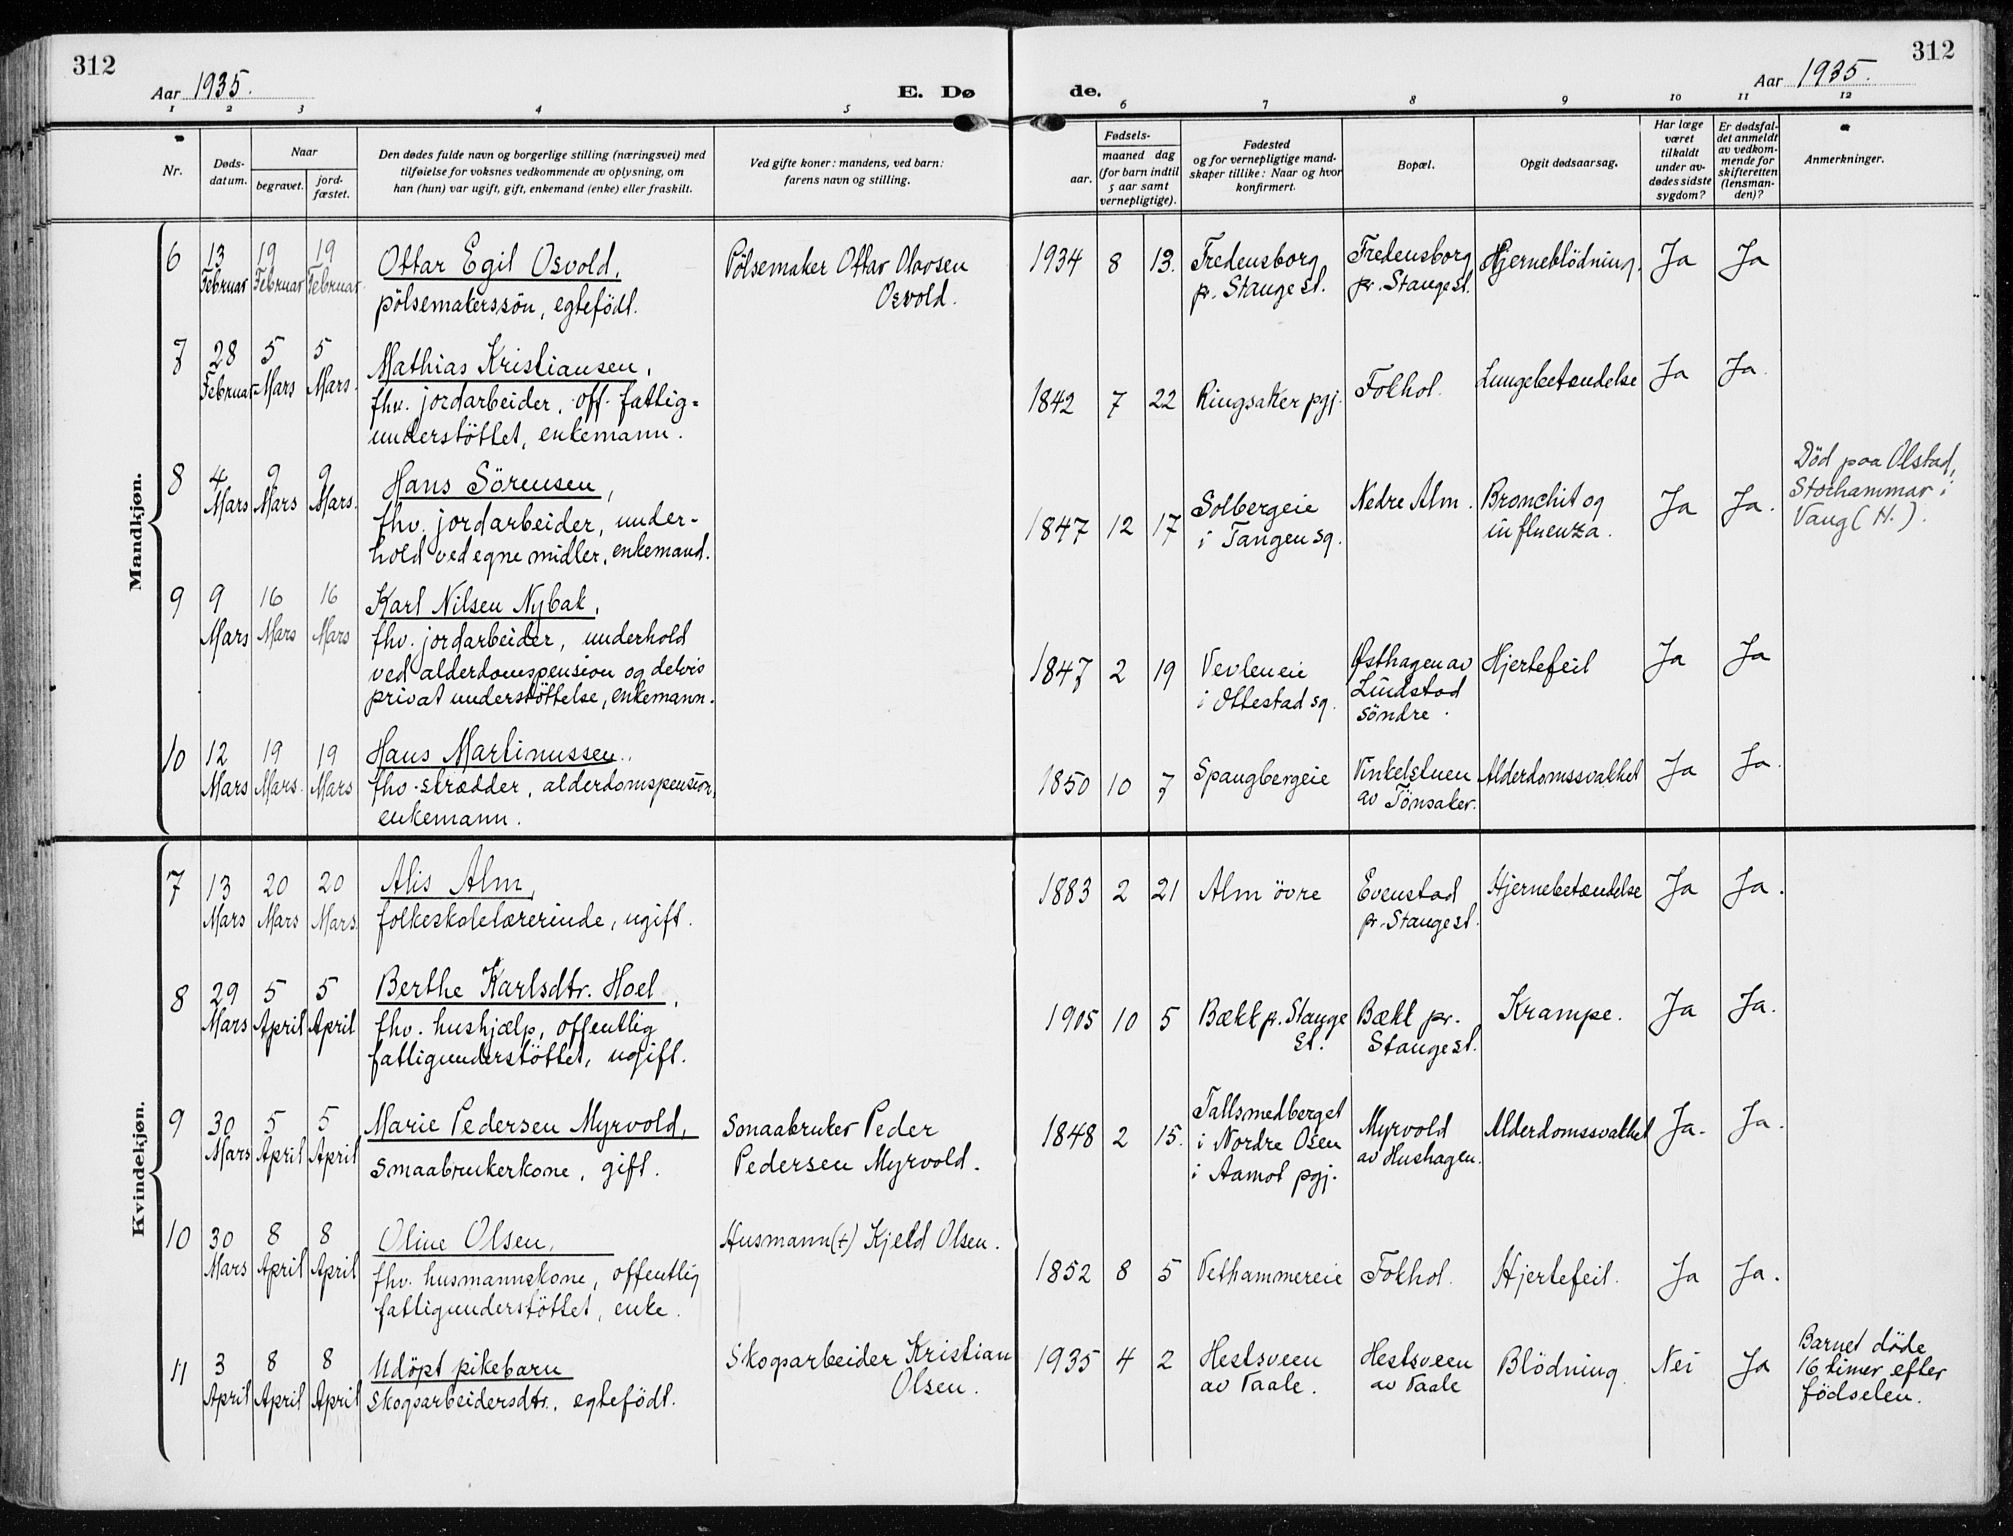 312
Aar 1935.
E. Dø
de.
Aar 1935.
312
1 2 3 4 5 6 7 8 9 10 11 12
Nr.
Døds-
datum.
Naar
begravet.
jord-
fæstet.
Den dødes fulde navn og borgerlige stilling (næringsvei) med
tilføielse for voksnes vedkommende av oplysning, om
han (hun) var ugift, gift, enkemand (enke) eller fraskilt.
Ved gifte koner: mandens, ved barn:
farens navn og stilling.
Fødsels-
aar.
maaned dag
(for barn indtil
5 aar samt
vernepligtige).
Fødested
og for vernepligtige mand-
skaper tillike: Naar og hvor
konfirmert.
Bopæl.
Opgit dødsaarsag.
Har læge
været
tilkaldt
under av-
dødes sidste
sygdom?
Er dødsfal-
det anmeldt
av vedkom-
mende for
skifteretten
(lensman-
den)?
Anmerkninger.
Mandkjøn.
6 13 Februar 19 Februar 19 Februar.
Ottar Egil Osvold,
pölsemakerssön, egtefödt.
Pölsemaker Ottar Olavsen
Osvold.
1934 8 13.
Fredensborg
p. Stange st.
Fredensborg
pr. Stange st.
Hjerneblödning.
Ja Ja
7 28 Februar 5 Mars 5 Mars.
Mathias Kristiansen,
fhv. jordarbeider, off. fattig=
understöttet, enkemann.
1842 7 22 Ringsaker pgj. Fokhol. Lungebetændelse Ja Ja.
8 4 Mars 9 Mars 9 Mars.
Hans Sörensen,
fhv. jordarbeider, under-
hold ved egne midler, enkemand.
1847 12 17
Solbergeie
i Tangen sg.
Nedre Alm.
Bronchit og
influenza.
Ja Ja.
Död paa Olstad,
Storhammar i
Vang (H.).
9 9 Mars 16 Mars 16 Mars
Karl Nilsen Nybak,
fhv. jordarbeider, underhold
ved alderdomspension og delvis
privat understöttelse, enkemann.
1847 2 19
Vevleneie
i Ottestad sg.
Østhagen av
Lindstad
söndre.
Hjertefeil
Ja Ja
10 12 Mars 19 Mars. 19 Mars
Hans Martinussen.
fhv. skrædder, alderdomspension,
enkemann.
1850 10 7 Spangbergeie
Vinkelstuen
av Tönsaker.
Alderdomssvakhet Ja Ja.
Kvindekjøn.
7 13 Mars 20 Mars 20 Mars.
Alis Alm,
folkeskolelærerinde, ugift.
1883 2 21 Alm övre
Evenstad
pr. Stange st.
Hjernebetændelse Ja Ja.
8 29 Mars 5 April 5 April
Berthe Karlsdtr. Hoel,
fhv. hushjælp, offentlig
fattigunderstöttet, ugift.
1905 10 5
Bækk p. Stange
st.
Bækk pr.
Stange st.
Krampe. Ja Ja.
9 30 Mars 5 April 5 April
Marie Pedersen Myrvold,
smaabrukerkone, gift.
Smaabruker Peder
Pedersen Myrvold.
1848 2 15.
Tallsmedberget
i Nordre Osen
i Aamot pgj.
Myrvold
av Hushagen.
Alderdomssvakhet Ja. Ja.
10 30 Mars 8 April 8 April
Oline Olsen,
fhv. husmannskone, offentlig
fattigunderstöttet, enke.
Husmann (+) Kjeld Olsen.
1852 8 5 Vethammereie Fokhol. Hjertefeil. Ja Ja.
11 3 April 8 April 8 April
Udöpt pikebarn
skogsarbeidersdtr., egtefödt.
Skogsarbeider Kristian
Olsen.
1935 4 2
Hestsveen
av Vaale.
Hestsveen
av Vaale
Blödning. Nei Ja
Barnet döde
16 timer efter
födselen.